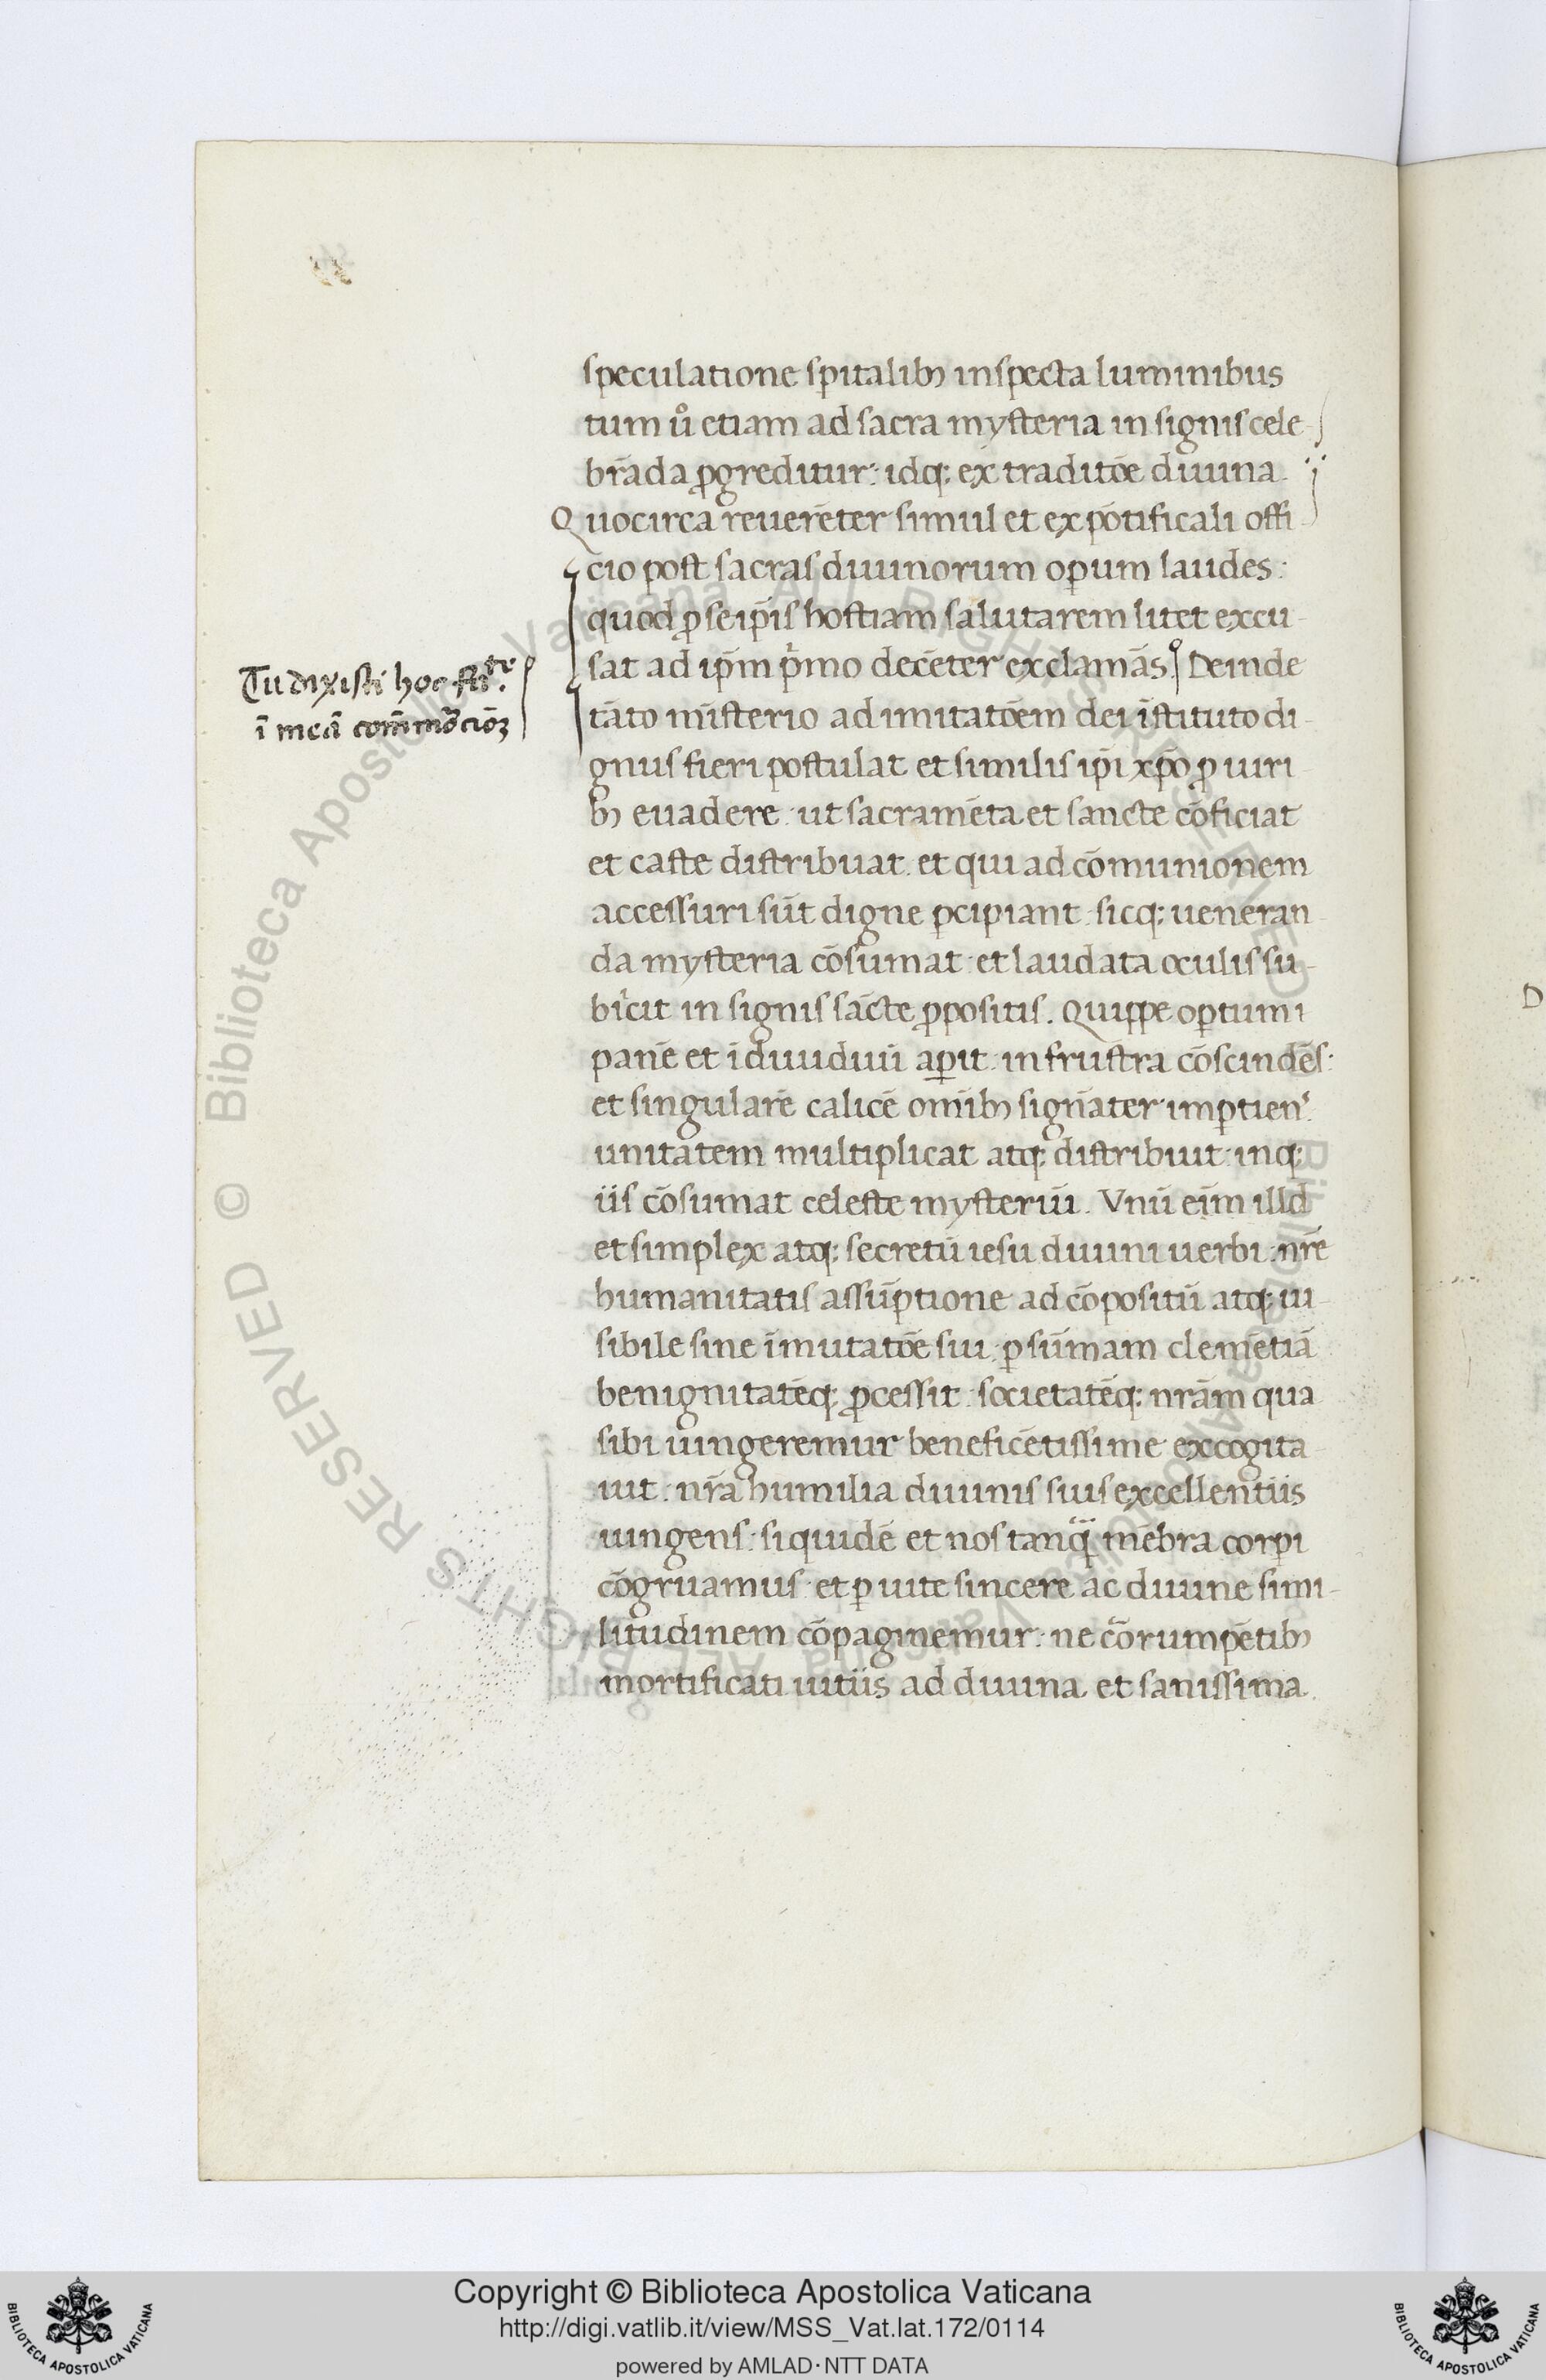 speculatione spitalibꝫ inspecta luminibus
tum ů etiam ad sacra mysteria in signis cele
br̄ada ꝓgreditur: idq; ex traditōe diuina.
Quocirca reuerēter simul et ex pōtificali offi
cio post sacras diuinorum oꝑum laudes:
quod ꝓ seip̄is hostiam salutarem litet excu
sat ad ip̄m pͥmo decēter exclamās. Deinde
tāto mīsterio ad imitatōem dei īstituto di
gnus fieri postulat et similis ip̄i xp̄o ꝓ uiri
bꝫ euadere: ut sacramēta et sancte cōficiat
et caste distribuat. et qui ad cōmunionem
accessuri sūt digne ꝑcipiant. sicq; ueneran
da mysteria cōsumat: et laudata oculis su
bicit in signis sācte ꝓpositis. Quippe oꝑtum
panē et īdiuiduū aꝑit: in frustra cōscindēs:
et singularē calicē omībꝫ signāter imꝑtiens
unitatem multiplicat atq; distribuit: inq;
iis cōsumat celeste mysteriū. Vnū eīm illd
et simplex atq; secretū iesu diuini uerbi: nr̄e
humanitatis assūptione ad cōpositū atq; ui
sibile sine īmutatōe sui: ꝑ sūmam clemētiā
benignitatēq; ꝓcessit: societatēq; nr̄am qua
sibi iūngeremur beneficētissime excogita
uit: nr̄a humilia diuinis suis excellentiis
iungens: siquidē et nos tanq̄ mēbra corꝑi
cōgruamus: et ꝑ uite sincere ac diuine simi
litudinem cōpaginemur: ne cōrumpētibꝫ
mortificati uitiis ad diuina et sanissima
Tu dixisti hoc facite
ī meā commēoracionē
Copyright © Biblioteca Apostolica Vaticana
http://digi.vatlib.it/view/MSS_Vat.lat.172/0114
powered by AMLAD·NTT DATA
BIBLIOTECA APOSTOLICA VATICANA
BIBLIOTECA APOSTOLICA VATICANA
© Biblioteca Apostolica Vaticana ALL RIGHTS RESERVED
D